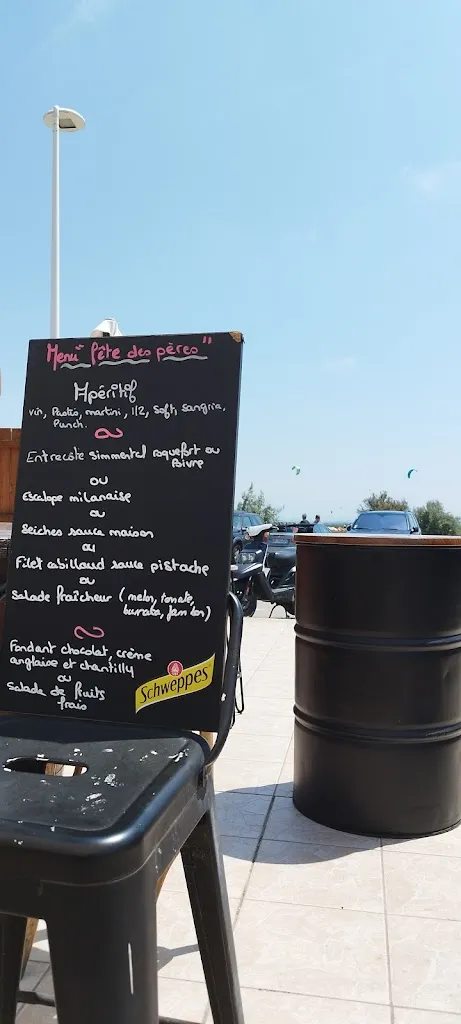 Menu "Fête des pères"
Apéritif
vin, Pastis, martini, 1/2, Soft, sangria,
Punch.
Entrecote simmental roquefort ou
Poivre
ou
Escalope milanaise
ou
Seiches sauce maison
ou
Filet cabillaud sauce pistache
ou
Salade fraîcheur (melon, tomate,
burrata, jambon)
Fondant chocolat, crème
anglaise et chantilly
ou
Salade de fruits
frais
Schweppes